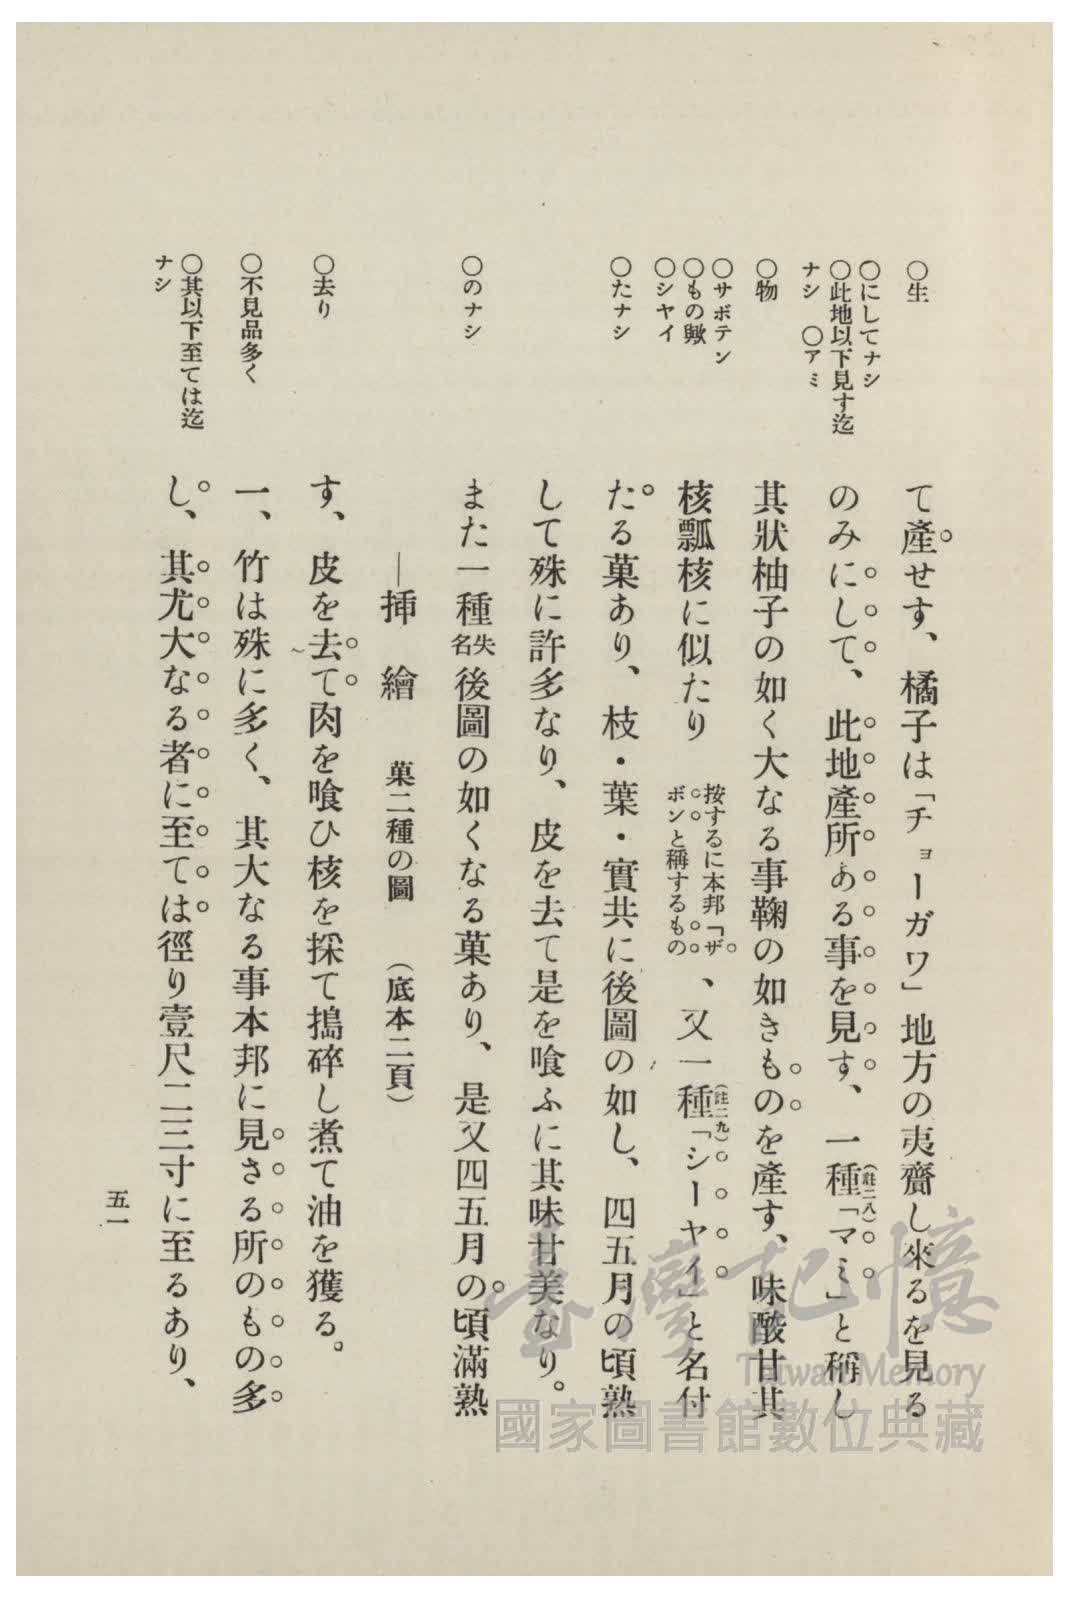 〇生
〇にしてナシ
〇此地以下見す迄
ナシ　〇アミ
〇物
〇サボテン
〇もの歟
〇シヤイ
〇たナシ
〇のナシ
〇去り
〇不見品多く
〇其以下至ては迄
ナシ
て產せす、橘子は「チョーガワ」地方の夷齎し來るを見る
のみにして、此地產所ある事を見す、一種（註二八）「マミ」と稱し
其狀柚子の如く大なる事鞠の如きものを產す、味酸甘其
核瓢核に似たり　按するに本邦「ザボンと稱するもの、又一種（註二九）「シーヤイ」と名付
たる菓あり、枝・葉・實共に後圖の如し、四五月の頃熟
して殊に許多なり、皮を去て是を喰ふに其味甘美なり。
また一種失名後圖の如くなる菓あり、是又四五月の頃滿熟
—插　繪　菓二種の圖　（底本二頁）
す、皮を去て肉を喰ひ核を採て搗碎し煮て油を獲る。
一、竹は殊に多く、其大なる事本邦に見さる所のもの多
し、其尤大なる者に至ては徑り壹尺二三寸に至るあり、
五一
臺灣記憶
Taiwan Memory
國家圖書館數位典藏